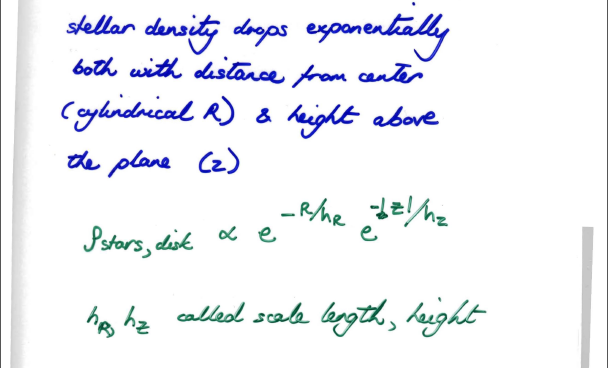 stellar density drops exponentially
both with distance from center
(cylindrical R) & height above
the plane (z)
ρstars, disk ∝ e^-R/hR e^-|z|/hz
hR, hz called scale length, height